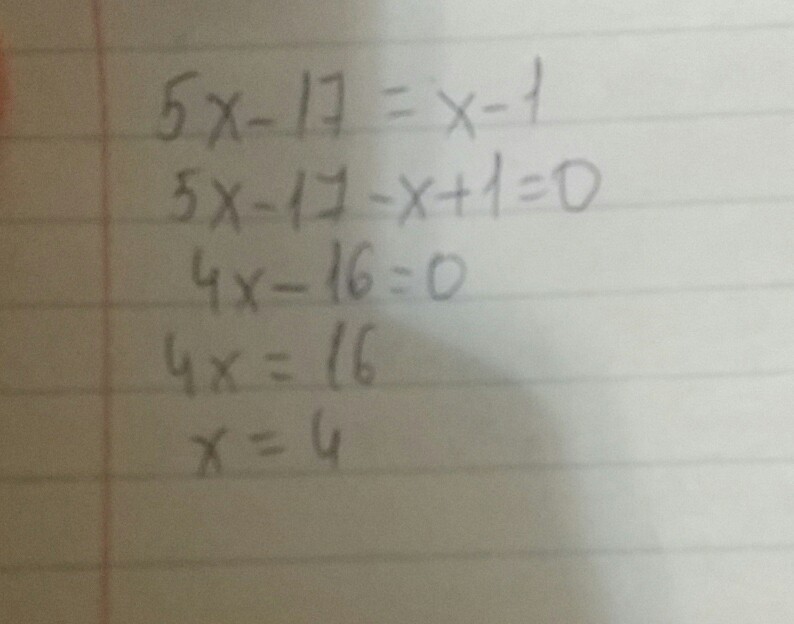 5x-17=x-1
5x-17-x+1=0
4x-16=0
4x=16
x=4